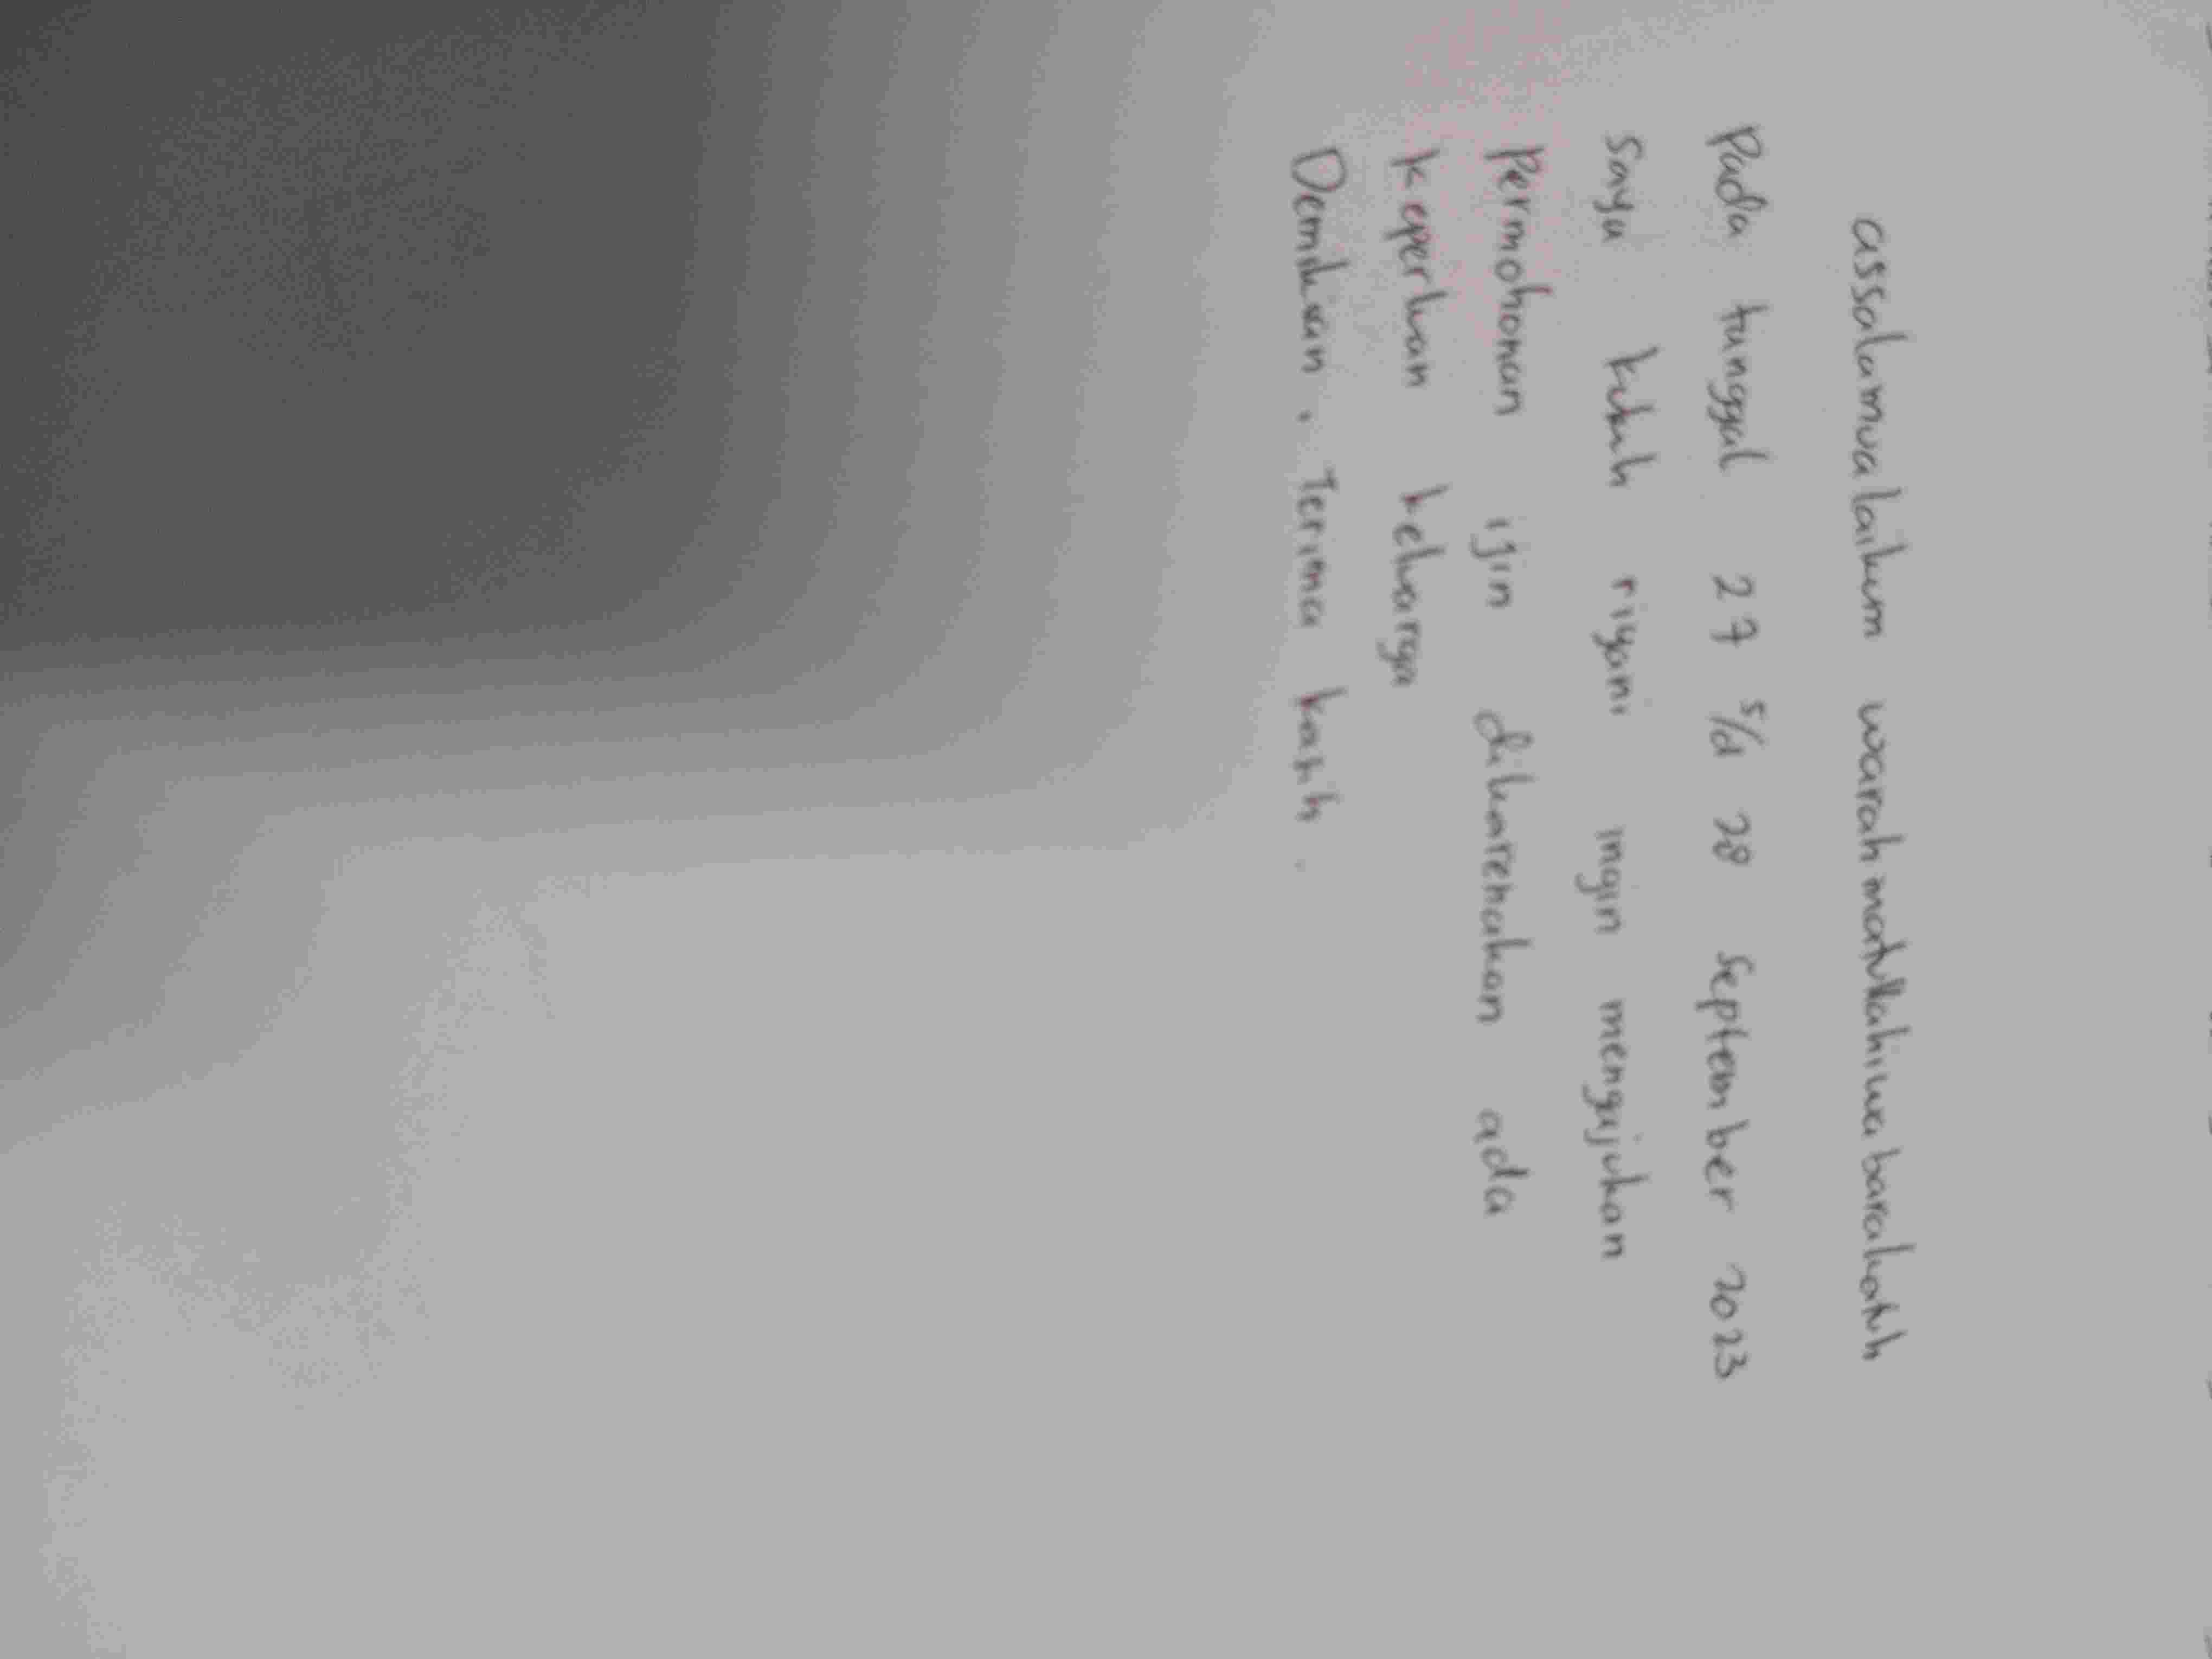 assalamualaikum warahmatullahiwabarakatuh
Pada tanggal 27 s/d 28 September 2023
saya riyani ingin mengajukan
Permohonan ijin dikarenakan ada
keperluan keluarga
Demikian . Terima kasih .